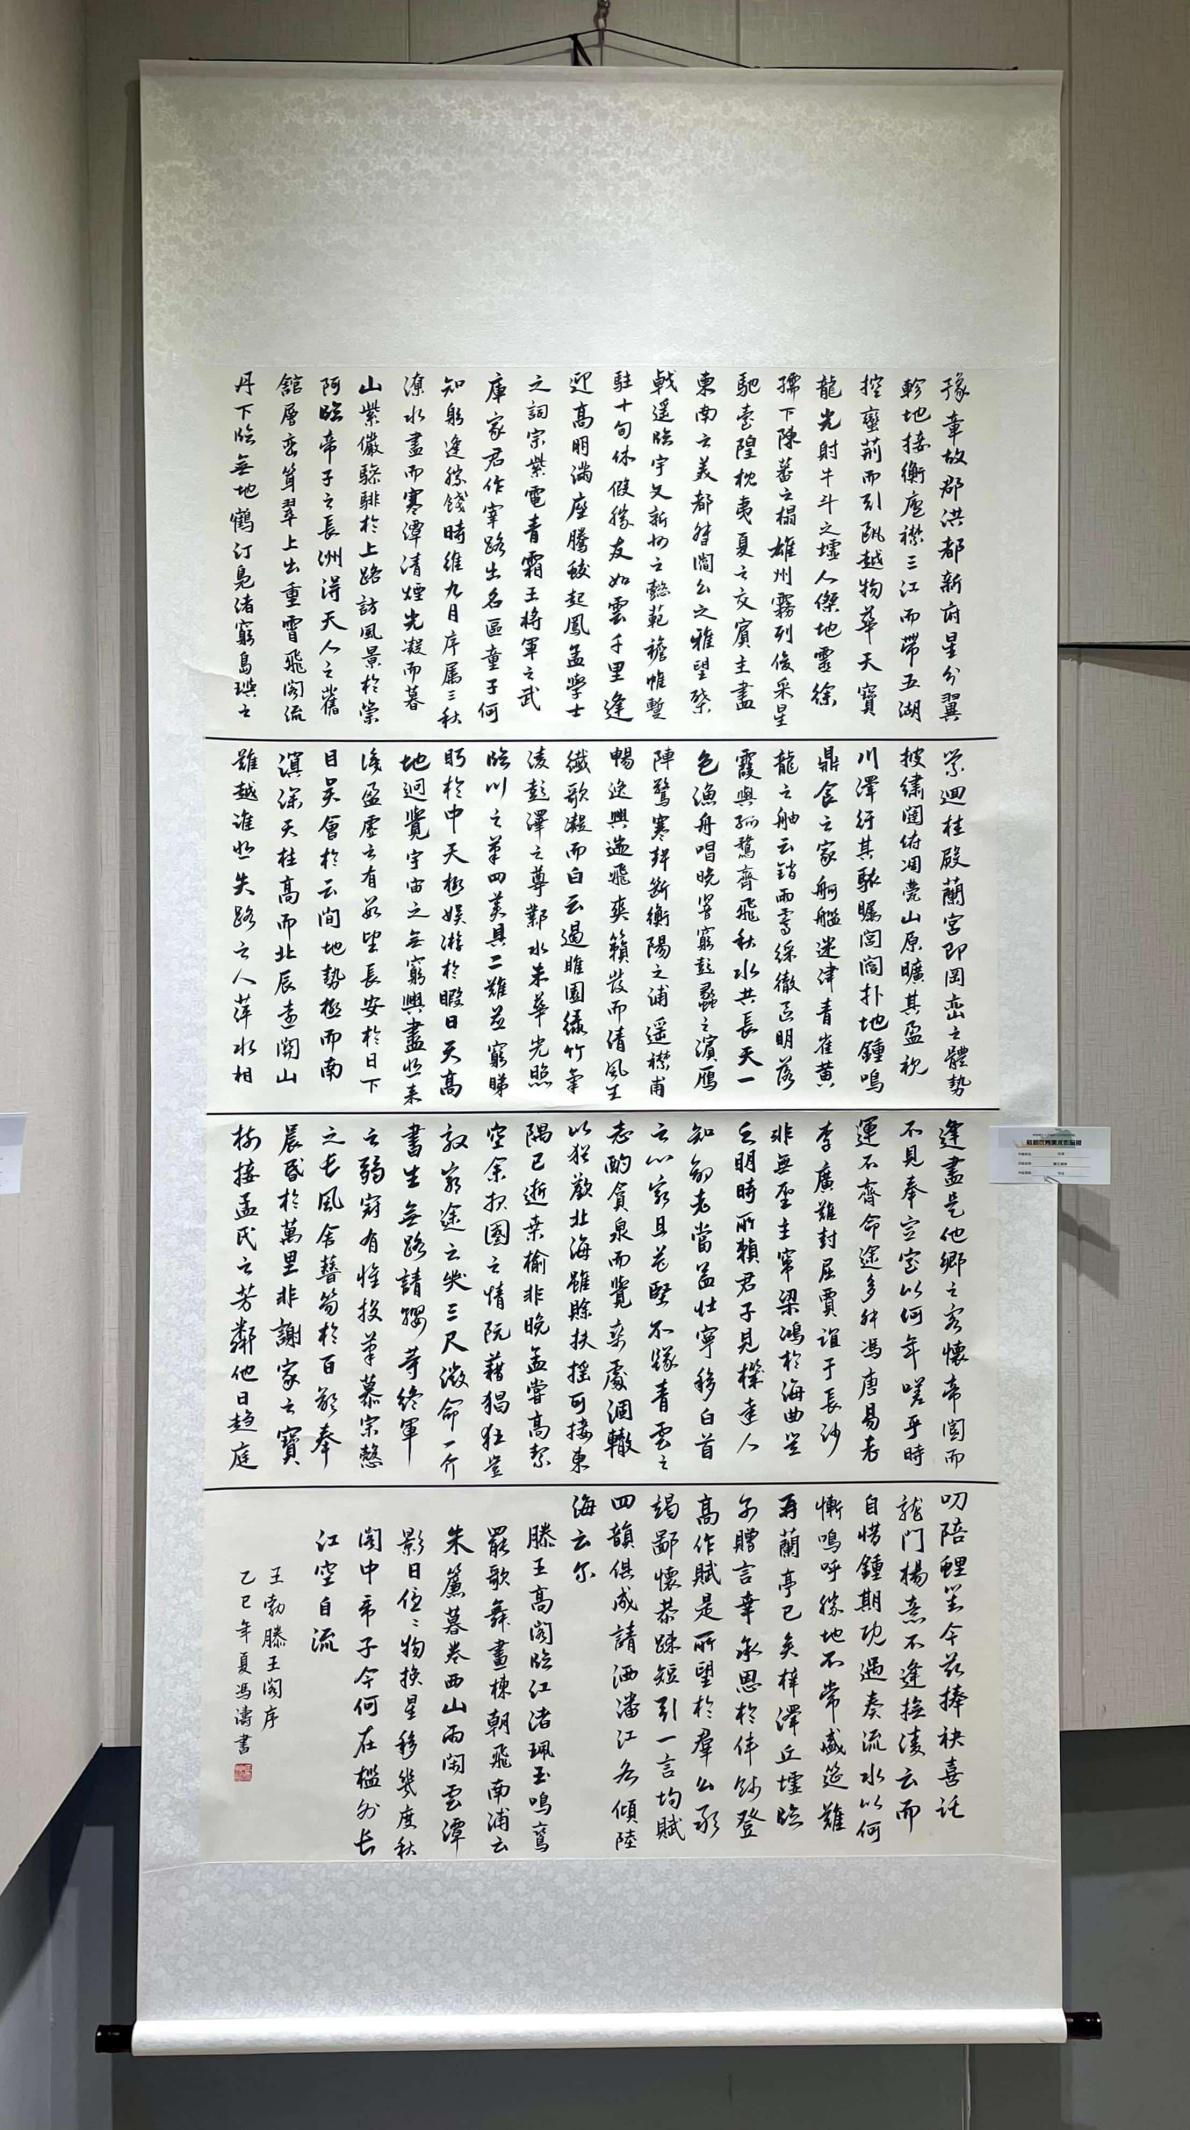 豫章故郡洪都新府星分翼
軫地接衡廬襟三江而帶五湖
控蠻荊而引甌越物華天寶
龍光射牛斗之墟人傑地靈徐
孺下陳蕃之榻雄州霧列俊采星
馳臺隍枕夷夏之交賓主盡
東南之美都督閻公之雅望棨
戟遥臨宇文新州之懿範襜帷暫
駐十旬休假勝友如雲千里逢
迎高朋滿座騰蛟起鳳孟學士
之詞宗紫電青霜王將軍之武
庫家君作宰路出名區童子何
知躬逢勝餞時維九月序屬三秋
潦水盡而寒潭清煙光凝而暮
山紫儼驂騑於上路訪風景於崇
阿臨帝子之長洲得天人之舊
館層巒聳翠上出重霄飛閣流
丹下臨無地鶴汀鳧渚窮島嶼之
縈迴桂殿蘭宮即岡巒之體勢
披繡闥俯雕甍山原曠其盈視
川澤紆其駭矚閭閻扑地鍾鳴
鼎食之家舸艦迷津青雀黄
龍之舳云銷雨霽綵徹區明落
霞與孤鶩齊飛秋水共長天一
色漁舟唱晚響窮彭蠡之濱雁
陣驚寒聲斷衡陽之浦遥襟甫
暢逸興遄飛爽籟發而清風生
纖歌凝而白云遏睢園綠竹氣
淩彭澤之尊鄴水朱華光照
臨川之筆四美具二難并窮睇
眄於中天極娱游於暇日天高
地迥覺宇宙之無窮興盡悲來
識盈虛之有數望長安於日下
目吴會於云間地勢極而南
溟深天柱高而北辰遠關山
難越誰悲失路之人萍水相
逢盡是他鄉之客懷帝閽而
不見奉宣室以何年嗟乎時
運不齊命途多舛馮唐易老
李廣難封屈賈誼于長沙
非無聖主竄梁鴻於海曲豈
乏明時所賴君子見機達人
知命老當益壯寧移白首
之心窮且益堅不墜青雲之
志酌貪泉而覺爽處涸轍
以猶歡北海雖賒扶摇可接東
隅已逝桑榆非晚孟嘗高潔
空余报國之情阮藉猖狂豈
效窮途之哭三尺微命一介
書生無路請纓等終軍
之弱冠有懷投筆慕宗愨
之长風舍簪笏於百齡奉
晨昏於萬里非謝家之寶
樹接孟氏之芳鄰他日趋庭
叨陪鯉對今兹捧袂喜託
龍门楊意不逢撫淩云而
自惜鍾期既遇奏流水以何
慚鳴呼勝地不常盛筵難
再蘭亭已矣梓澤丘墟臨
别贈言幸承恩於伟餞登
高作賦是所望於羣公敢
竭鄙懷恭疎短引一言均賦
四韻俱成請洒潘江各傾陸
海云尔
滕王高阁臨江渚珮玉鳴鸞
罷歌舞畫棟朝飛南浦云
朱簾暮卷西山雨闲雲潭
影日悠〻物换星移幾度秋
阁中帝子今何在檻外长
江空自流
王勃滕王阁序
乙巳年夏馮濤書